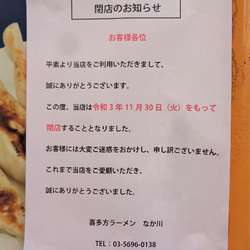 閉店のお知らせ
お客様各位
平素より当店をご利用いただきまして、
誠にありがとうございます。
この度、当店は令和3年11月30日(火)をもって
閉店することとなりました。
お客様には大変ご迷惑をおかけし、申し訳ございません。
これまで当店をご愛顧いただき、
誠にありがとうございました。
喜多方ラーメン なか川
TEL:03-5696-0138